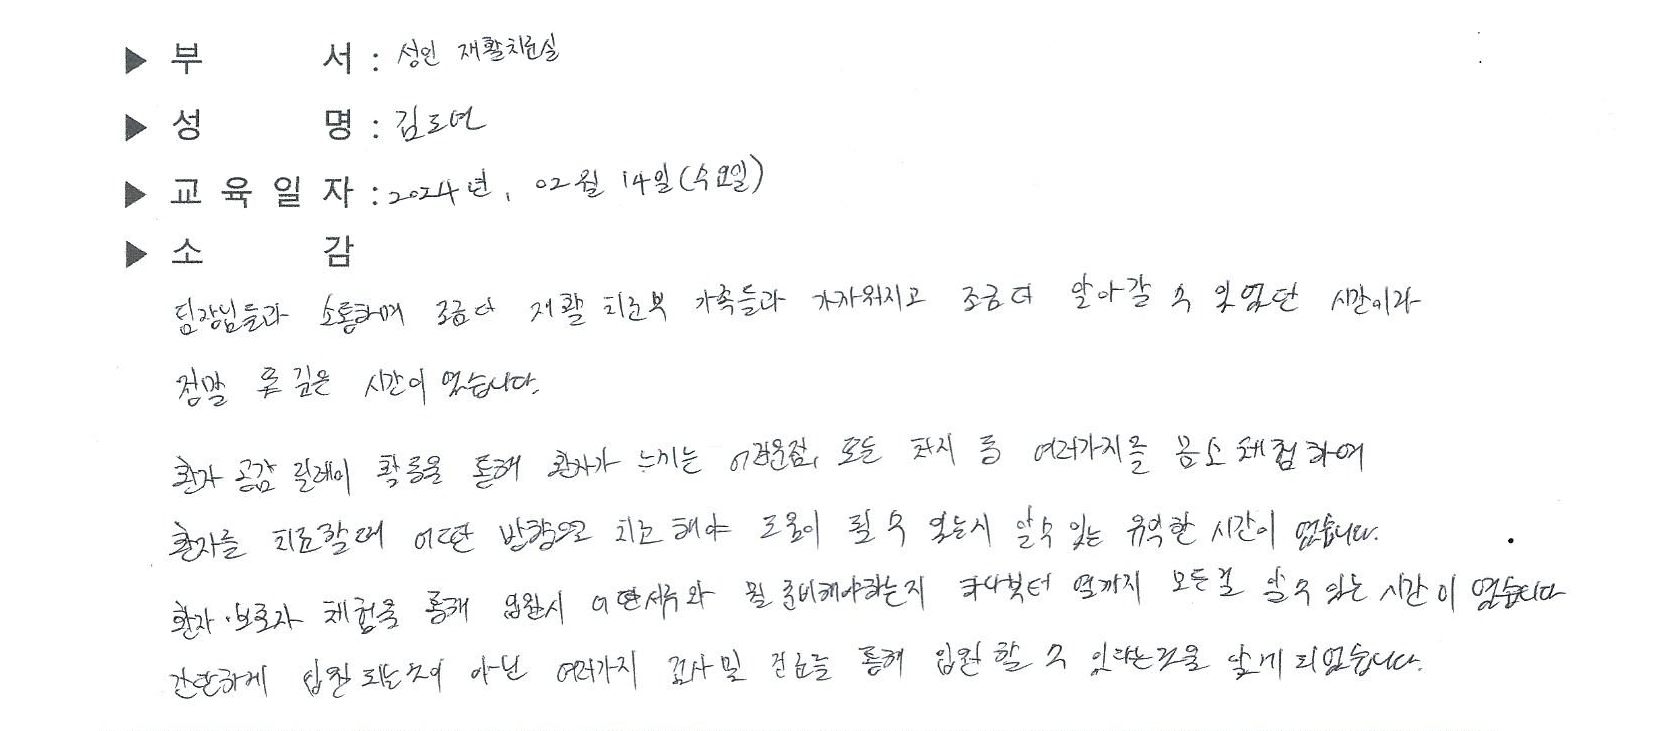 ▶ 부 서 : 성인 재활치료실
▶ 성 명 : 김도연
▶ 교 육 일 자 : 2024년, 02월 14일(수요일)
▶ 소 감
팀장님들과 소통하며 조금더 재활 치료부 가족들과 가까워지고 조금더 알아갈 수 있었던 시간이라
정말 뜻 깊은 시간이 였습니다.
환자 공감 릴레이 활동을 통해 환자가 느끼는 어려운점, 모든 처치 등 여러가지를 몸소 체험하여
환자를 치료할때 어떤 방향으로 치료 해야 도움이 될 수 있는지 알수 있는 유익한 시간이 였습니다.
환자·보호자 체험을 통해 입원시 어떤서류와 뭘 준비해야하는지 하나부터 열까지 모든걸 알수 있는 시간이 였습니다
간단하게 입원 되는것이 아닌 여러가지 검사 및 진료를 통해 입원 할 수 있다는것을 알게 되었습니다.